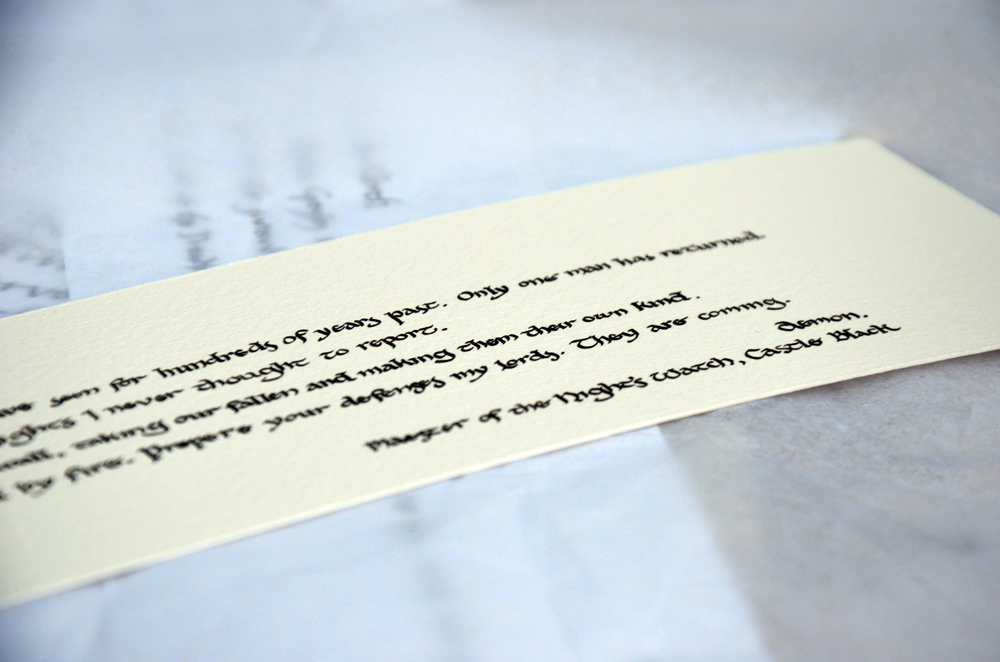 seen for hundreds of years past. Only one man has returned.
I never thought to report.
wall, taking our fallen and making them their own kind.
by fire. Prepare your defenses my lords. They are coming.
Aemon.
Maester of the Night's Watch, Castle Black